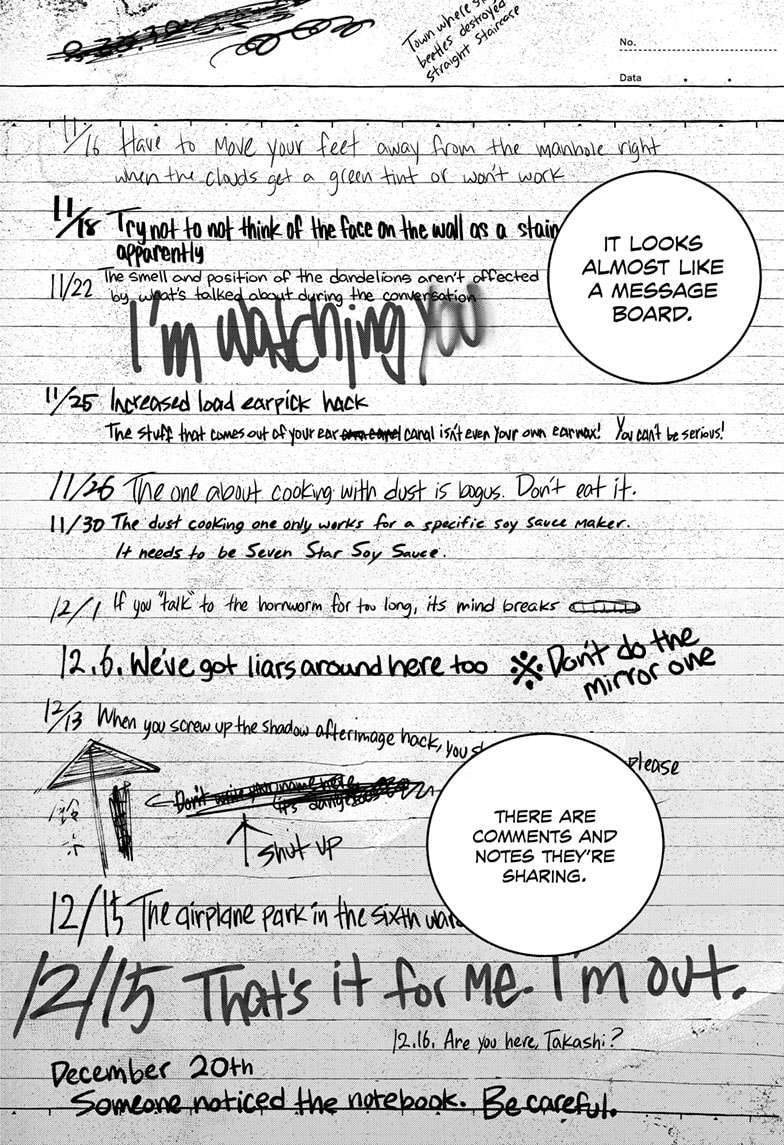 Town where s
beetles destroyed
straight staircase
No.
Data
11/16 Have to move your feet away from the manhole right
when the clouds get a green tint or won't work
11/18 Try not to not think of the face on the wall as a stain
apparently
11/22 The smell and position of the dandelions aren't affected
by what's talked about during the conversation
I'm watching you
IT LOOKS
ALMOST LIKE
A MESSAGE
BOARD.
11/25 Increased load earpick hack
The stuff that comes out of your ear canal isn't even your own earwax! You can't be serious!
11/26 The one about cooking with dust is bogus. Don't eat it.
11/30 The dust cooking one only works for a specific soy sauce maker.
It needs to be Seven Star Soy Sauce.
12/1 If you "talk" to the hornworm for too long, its mind breaks
12.6. We've got liars around here too ※ Don't do the
mirror one
12/13 When you screw up the shadow afterimage hack, you please
Don't write your name here
it's dangerous
shut up
THERE ARE
COMMENTS AND
NOTES THEY'RE
SHARING.
12/15 The airplane park in the sixth ward
12/15 That's it for me. I'm out.
12.16. Are you here, Takashi?
December 20th
Someone noticed the notebook. Be careful.